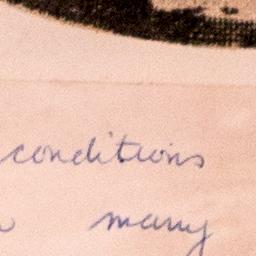 conditions
many